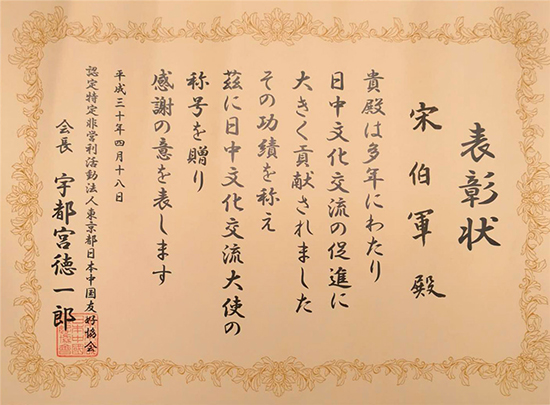 表彰状
宋伯軍 殿
貴殿は多年にわたり
日中文化交流の促進に
大きく貢献されました
その功績を称え
茲に日中文化交流大使の
称号を贈り
感謝の意を表します
平成三十年四月十八日
認定特定非営利活動法人東京都日本中国友好協会
会長 宇都宮徳一郎